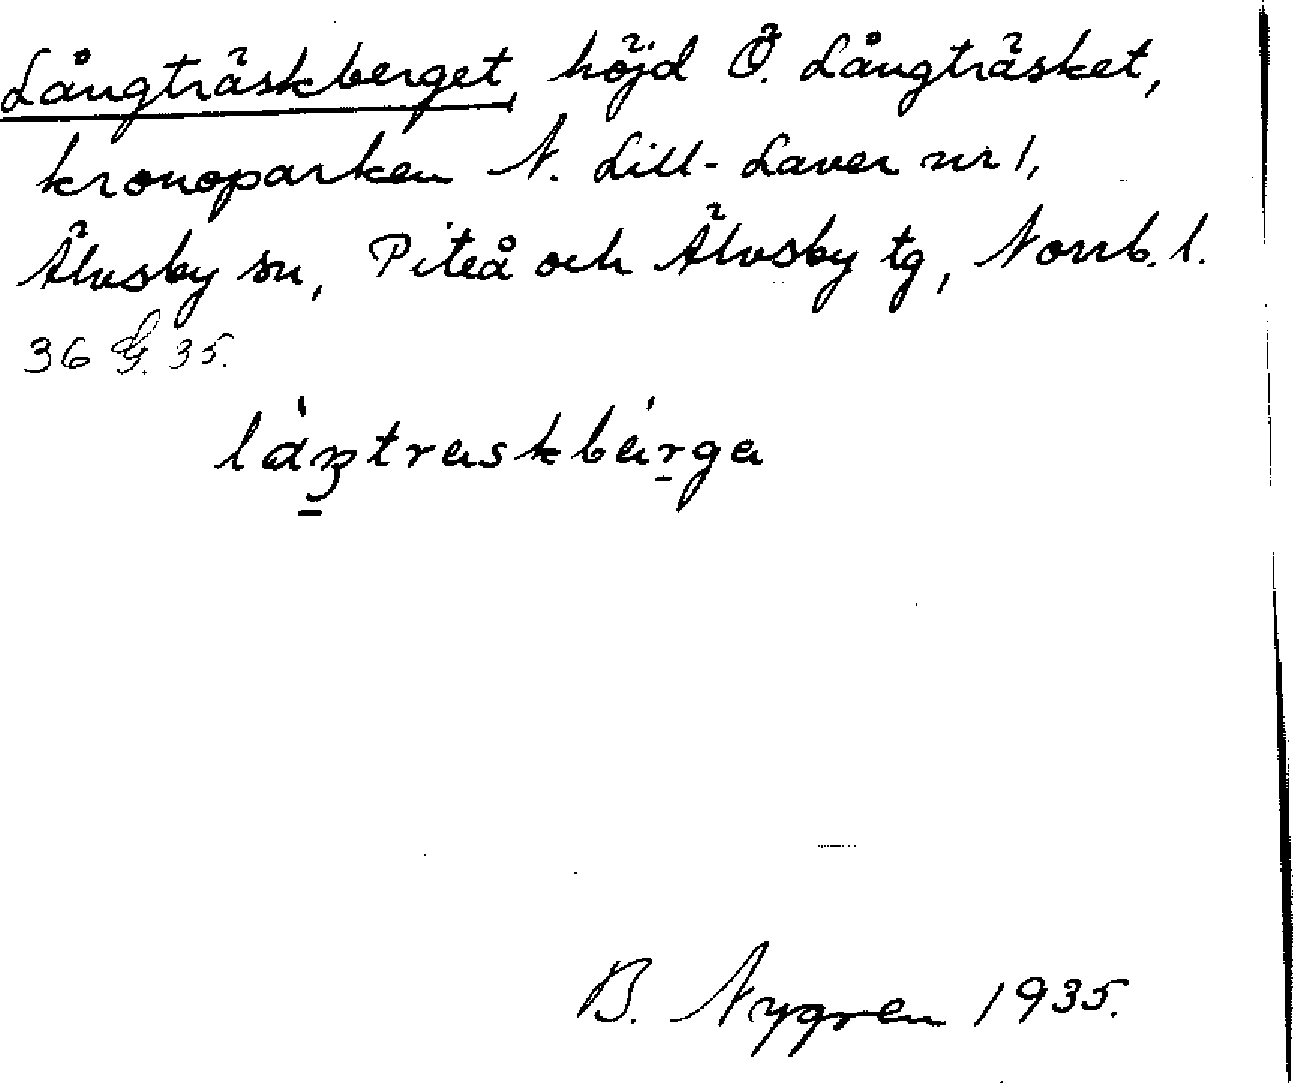 Långträskberget, höjd Ö. Långträsket,
kronoparken N. Lill-Laver nr 1,
Älvsby sn, Piteå och Älvsby tg, Norrb. l.
36 G. 35.
làŋtraskbàrga
B. Nygren 1935.